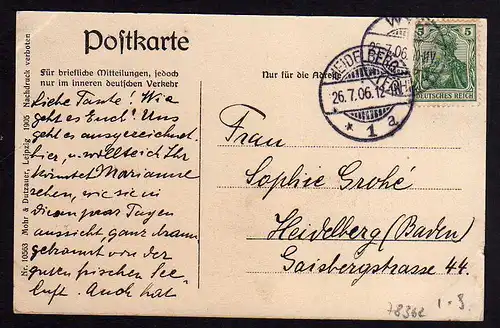 Postkarte
Für briefliche Mitteilungen, jedoch
nur im inneren deutschen Verkehr
Nur für die Adresse
Liebe Tante! Wie
geht es Euch! Uns
geht es ausgezeichnet
hier, u. wollte ich Ihr
könntet Marianne
sehen, wie sie in
diesen paar Tagen
aussieht, ganz braun
gebrannt von der
guten frischen See
luft. Auch hat
Frau
Sophie Grohé
Heidelberg (Baden)
Gaisbergstrasse 44.
Nr. 10563 Mohr & Dutzauer, Leipzig 1905 Nachdruck verboten
HEIDELBERG
26.7.06.
* 1 a.
W
25.7.06
5 5
DEUTSCHES REICH
7836e
1.-3